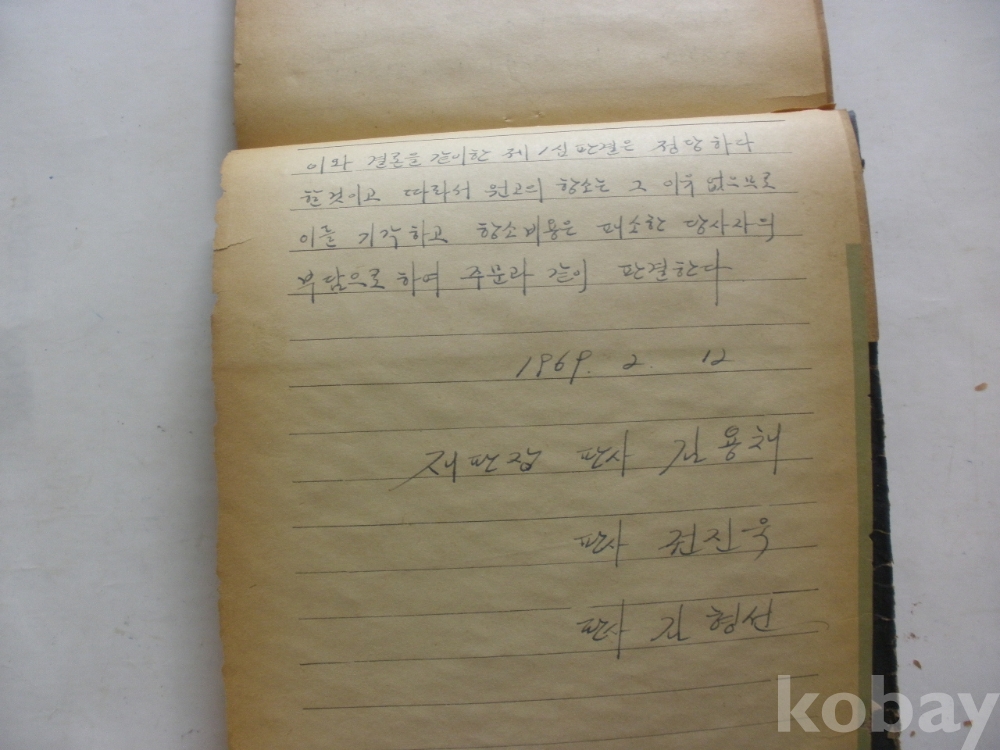 이와 결론을 같이한 제1심 판결은 정당하다
한것이고 따라서 원고의 항소는 그 이유 없으므로
이를 기각하고 항소비용은 패소한 당사자의
부담으로 하여 주문과 같이 판결한다
1969. 2. 12
재판장 판사 김용채
판사 권진욱
판사 김형선
kobay